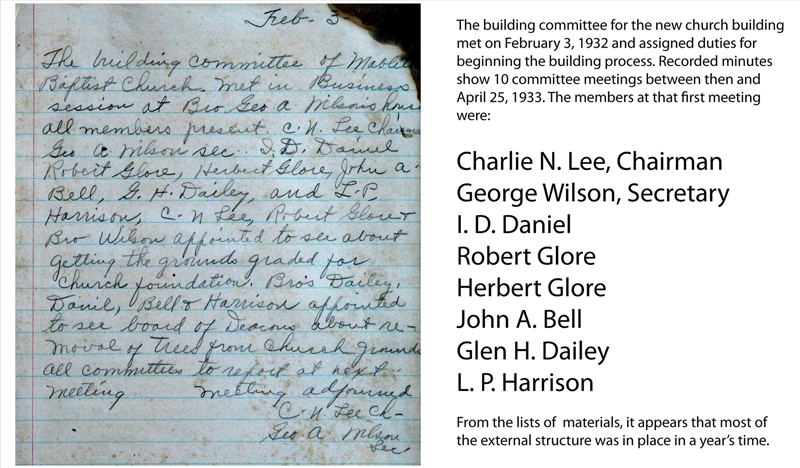 Feb- 3-
The building committee of
Baptist Church. Met in Business
session at Bro Geo A Wilson's
all members present. C. N. Lee
Geo A Wilson sec.. I. D. Daniel
Robert Glore, Herbert Glore, John A-
Bell, G. H. Dailey, and L-P,
Harrison, C-N Lee, Robert Glore &
Bro Wilson appointed to see about
getting the grounds graded for
Church foundation. Bro's Dailey,
Danil, Bell & Harrison appointed
to see board of Deacons about re-
moval of trees from Church grounds
all committies to report at next-
meeting meeting adjourned
C. N. Lee Ch-
Geo A Wilson
Sec
The building committee for the new church building
met on February 3, 1932 and assigned duties for
beginning the building process. Recorded minutes
show 10 committee meetings between then and
April 25, 1933. The members at that first meeting
were:
Charlie N. Lee, Chairman
George Wilson, Secretary
I. D. Daniel
Robert Glore
Herbert Glore
John A. Bell
Glen H. Dailey
L. P. Harrison
From the lists of materials, it appears that most of
the external structure was in place in a year's time.